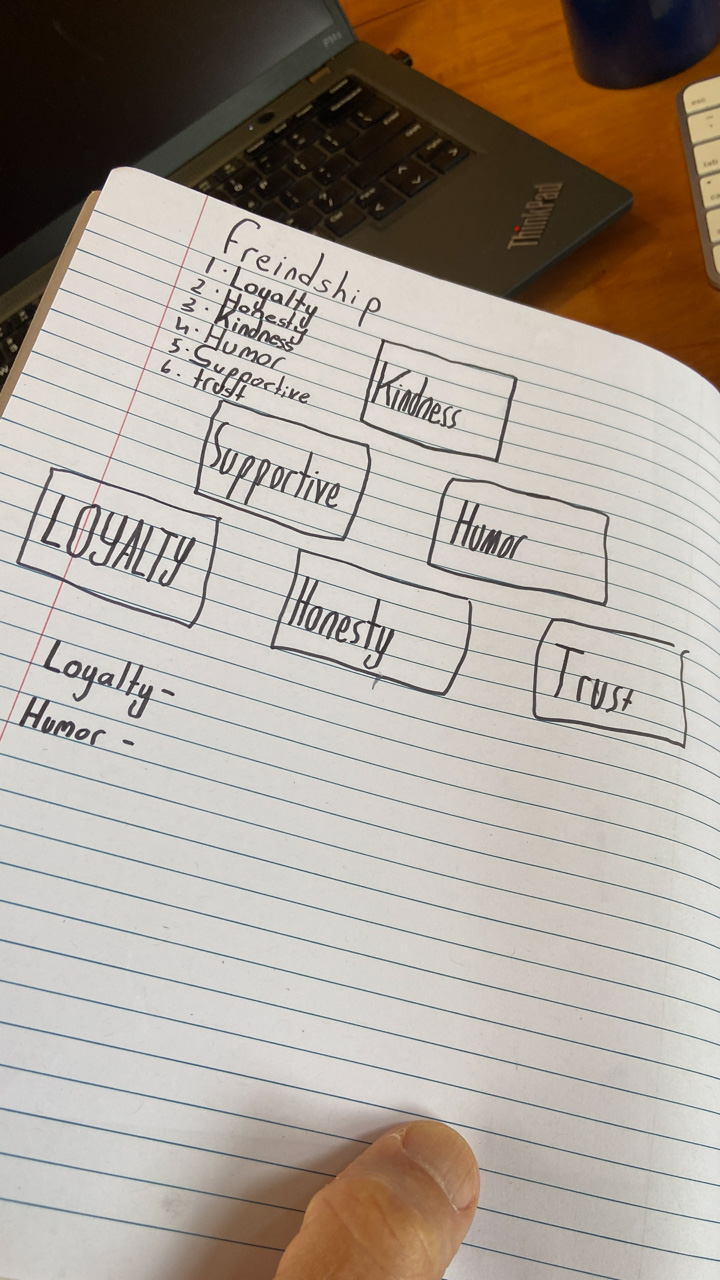 P14s
ThinkPad
esc
tab
Freindship
1. Loyalty
2. Honesty
3. Kindness
4. Humor
5. Supportive
6. trust
Kindness
Supportive
Humor
LOYALTY
Honesty
Trust
Loyalty-
Humor -